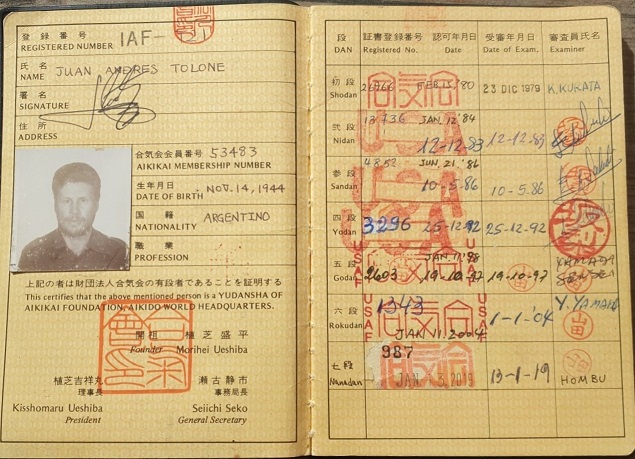 登録番号
REGISTERED NUMBER IAF-
氏名
NAME JUAN ANDRES TOLONE
署名
SIGNATURE
住所
ADDRESS
合気会会員番号 53483
AIKIKAI MEMBERSHIP NUMBER
生年月日
DATE OF BIRTH NOV. 14, 1944
国籍
NATIONALITY ARGENTINO
職業
PROFESSION
上記の者は財団法人合気会の有段者であることを証明する
This certifies that the above mentioned person is a YUDANSHA OF
AIKIKAI FOUNDATION, AIKIDO WORLD HEADQUARTERS.
開祖 植芝盛平
Founder Morihei Ueshiba
植芝吉祥丸 瀬古静市
理事長 事務局長
Kisshomaru Ueshiba Seiichi Seko
President General Secretary
段 証書登録番号 認可年月日 受審年月日 審査員氏名
DAN Registered No. Date Date of Exam. Examiner
初段
Shodan 26766 FEB. 15. '80 23 DIC 1979 K. KURATA
弐段 13736 JAN. 12. '84
Nidan 12-12-83 12-12-83
参段 4852 JUN. 21. '86
Sandan 10-5-86 10-5-86
四段
Yodan 3296 25-12-92 25-12-92
五段 JAN. 11. '98 YAMADA
Godan 2603 19-10-97 19-10-97 SENSEI
六段 1343 Y. YAMADA
Rokudan JAN 11. 2004 1-1-04
七段 987
Nanadan JAN 3, 2019 13-1-19 HOMBU
USAF
USAF
USAF
USAF